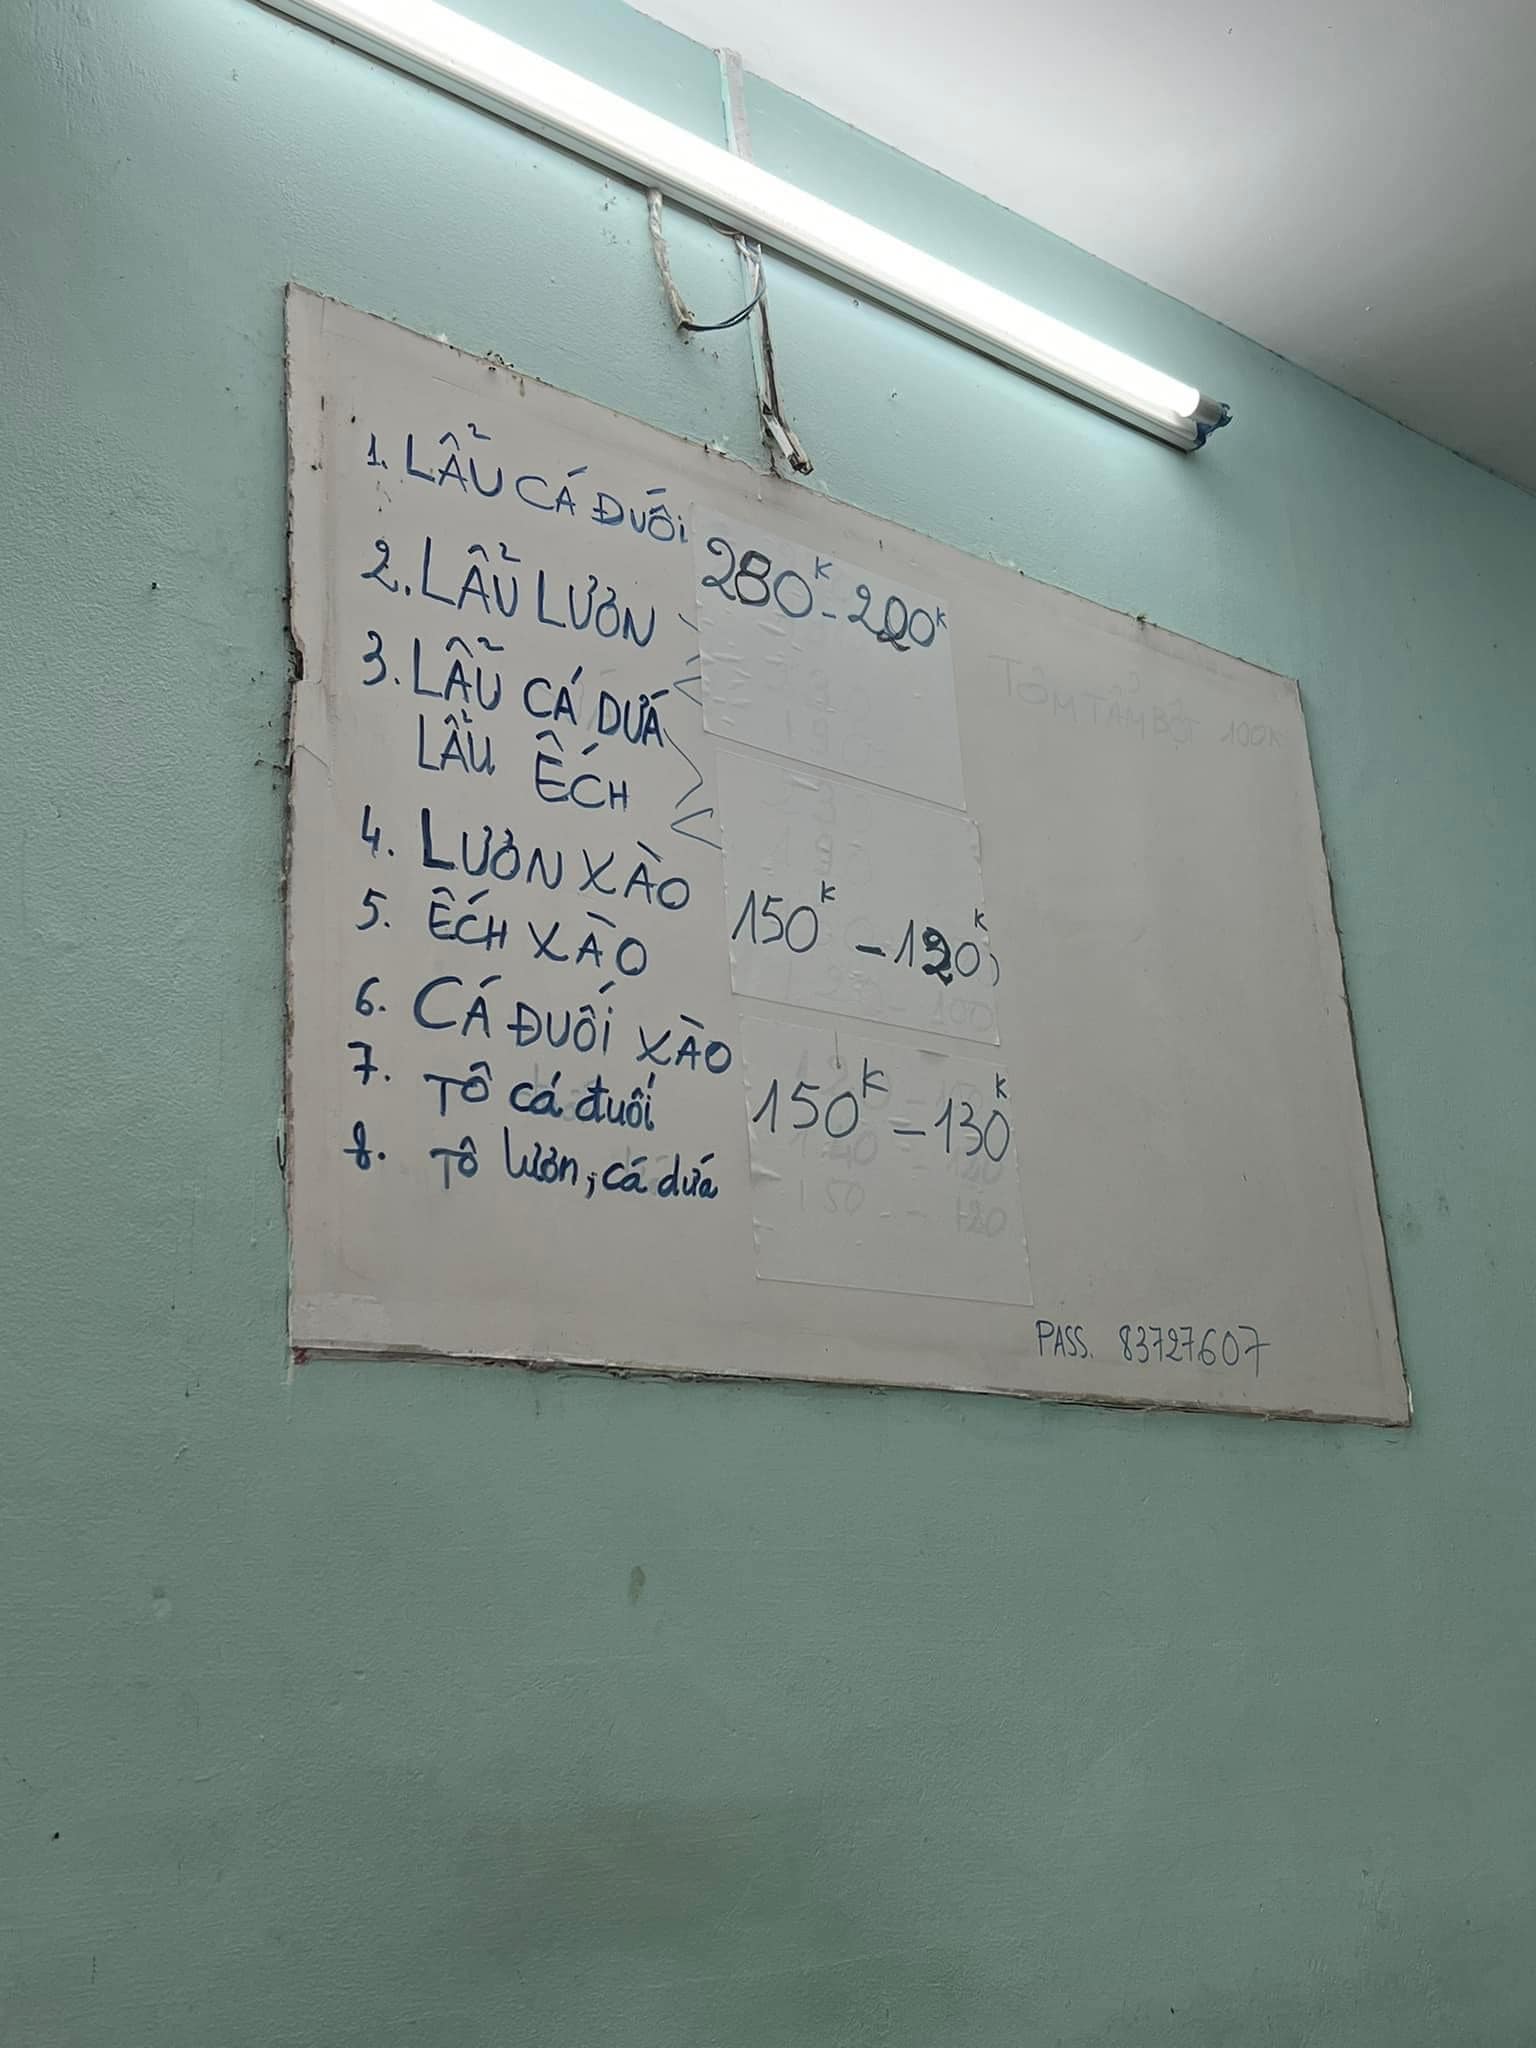 1. LẨU CÁ ĐUỐI
280K - 220K
2. LẨU LƯƠN
3. LẨU CÁ DỨA
LẨU ẾCH
4. LƯƠN XÀO
150K - 120K
5. ẾCH XÀO
6. CÁ ĐUỐI XÀO
7. TÔ cá đuối
150K - 130K
8. TÔ lươn, cá dứa
TÔM TẨM BỘT 100K
PASS. 83727607